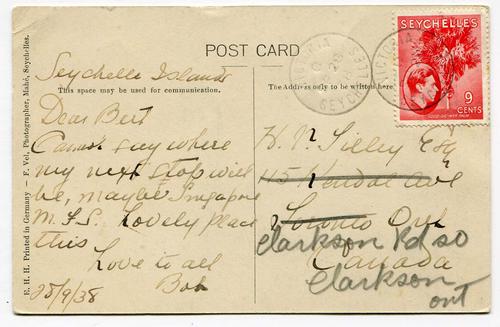 POST CARD
Seychelle Islands
This space may be used for communication.
Dear Bert
Cannot say where
my next stop will
be, maybe Singapore
M.F.S. Lovely place
this
Love to all
Bob
28/9/38
E. H. H. Printed in Germany — F. Vel, Photographer, Mahé, Seychelles.
The Address only to be written here.
SEYCHELLES
9
CENTS
VICTORIA
SEYCHELLES
H. V. Tilley Esq
115 Kendal Ave
Toronto Ont
Clarkson Rd so
Canada
Clarkson
ont